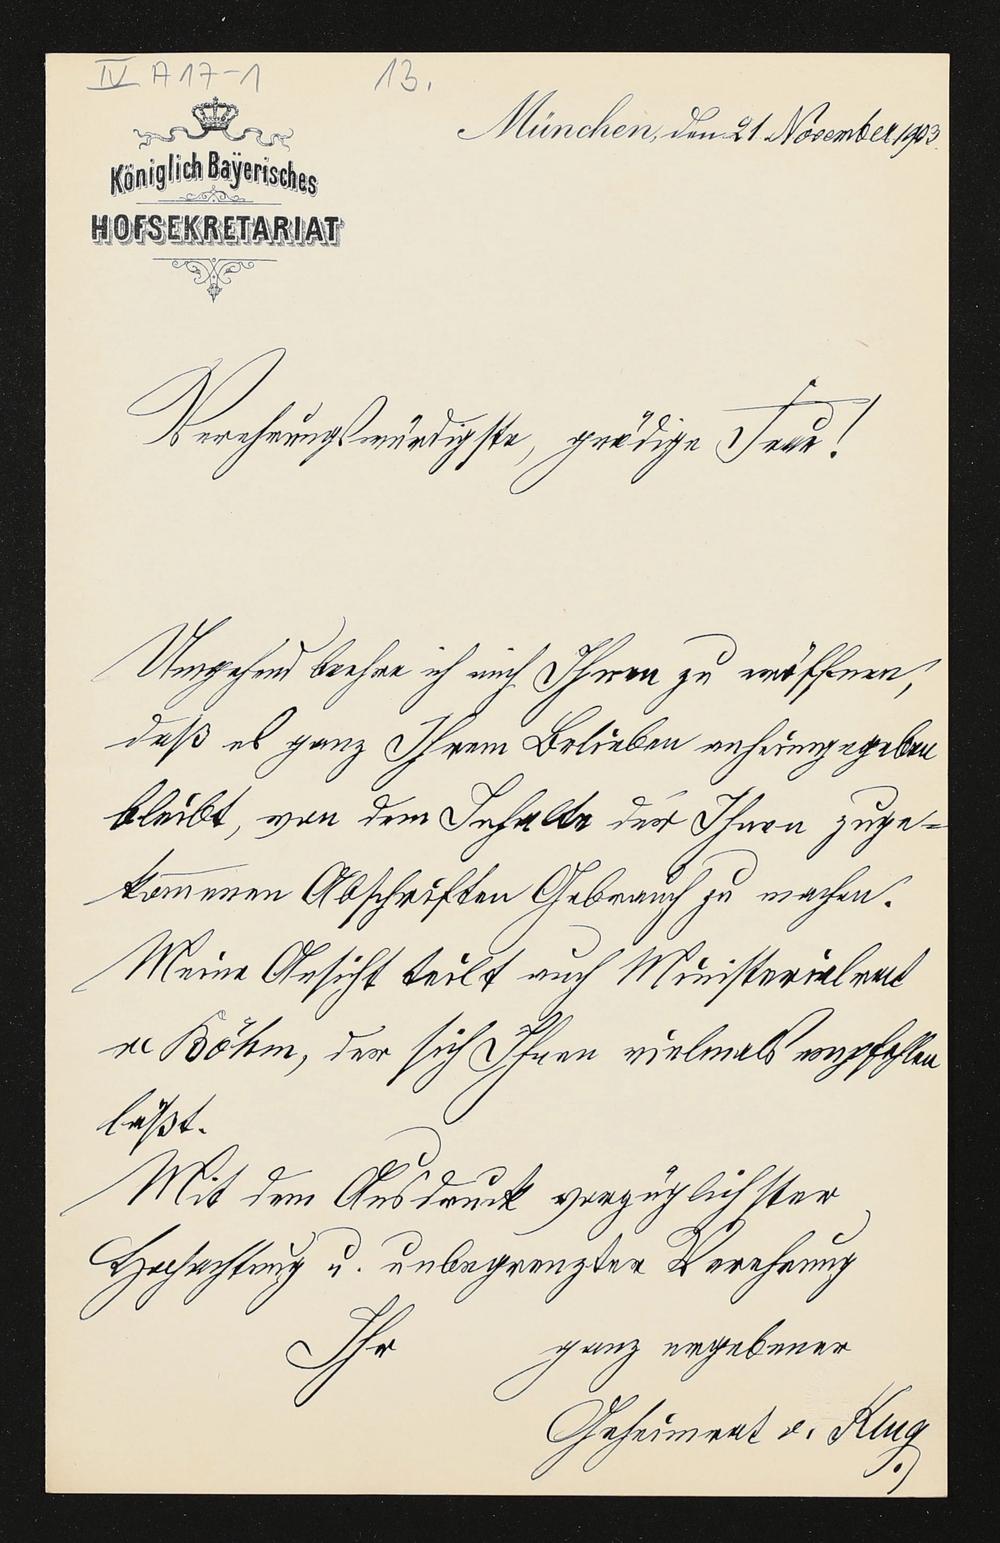 IV A 17-1 13.
Königlich Bayerisches
HOFSEKRETARIAT
München, den 21. November 1903.
Verehrungswürdigste, gnädige Frau!
Umgehend beehre ich mich Ihnen zu eröffnen,
daß es ganz Ihrem Belieben anheimgegeben
bleibt, von dem Inhalte der Ihnen zuge=
kommenen Abschriften Gebrauch zu machen.
Meine Ansicht teilt auch Ministerialrat
v. Böhm, der sich Ihnen vielmals empfehlen
läßt.
Mit dem Ausdruck vorzüglichster
Hochachtung u. unbegrenzter Verehrung
Ihr ganz ergebener
Geheimrat v. Klug